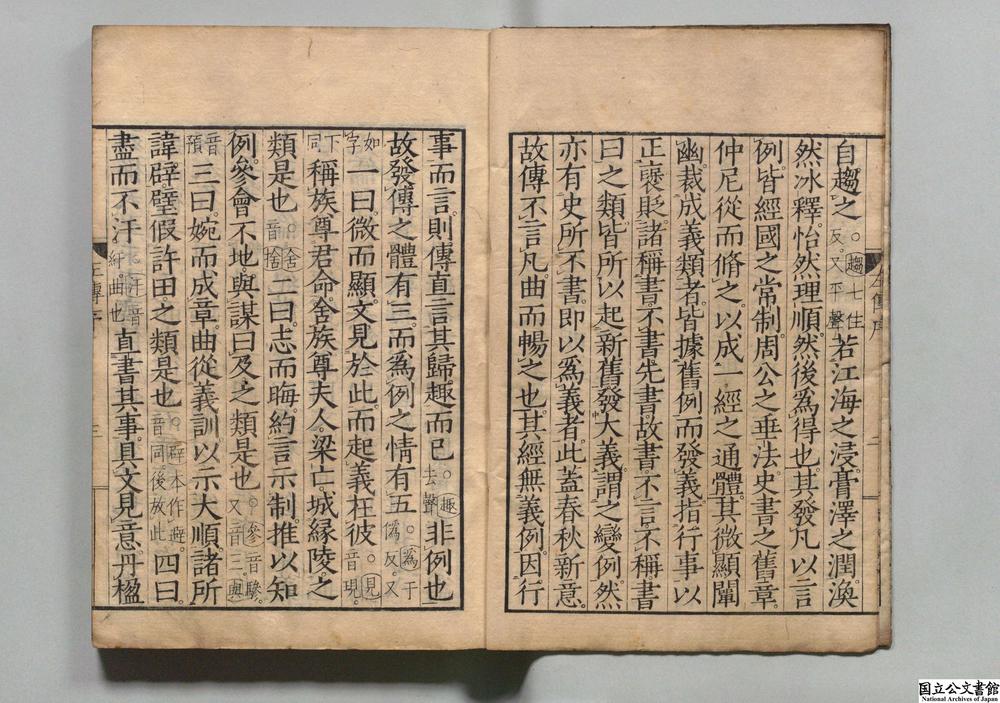 自趨之。趨七住反。又平聲若江海之浸。膏澤之潤。渙
然冰釋。怡然理順。然後為得也。其發凡以言
例。皆經國之常制。周公之垂法。史書之舊章。
仲尼從而脩之。以成一經之通體。其微顯闡
幽。裁成義類者。皆據舊例而發義。指行事以
正褒貶。諸稱書。不書。先書。故書。不言。不稱。書
曰之類。皆所以起新舊。發大義。謂之變例。然
亦有史所不書。即以為義者。此蓋春秋新意。
故傳不言凡。曲而暢之也。其經無義例。因行
事而言。則傳直言其歸趣而已。趣去聲非例也
故發傳之體有三。而為例之情有五。為于偽反。又
如字下同一曰。微而顯。文見於此。而起義在彼。見音現。
稱族尊君命。舍族尊夫人。梁亡城緣陵之
類是也。舍音捨二曰。志而晦。約言示制。推以知
例。參會不地。與謀曰及之類是也。參音驂。又音三。與
音預三曰。婉而成章。曲從義訓。以示大順。諸所
諱辟。璧假許田之類是也。辟本作避。音同後放此四曰。
盡而不汙。汙音紆。曲也直書其事。具文見意。丹楹
国立公文書館
National Archives of Japan